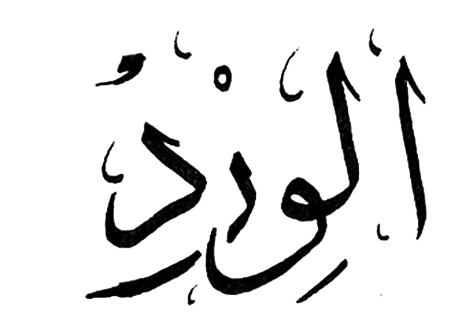 الوِرْدُ